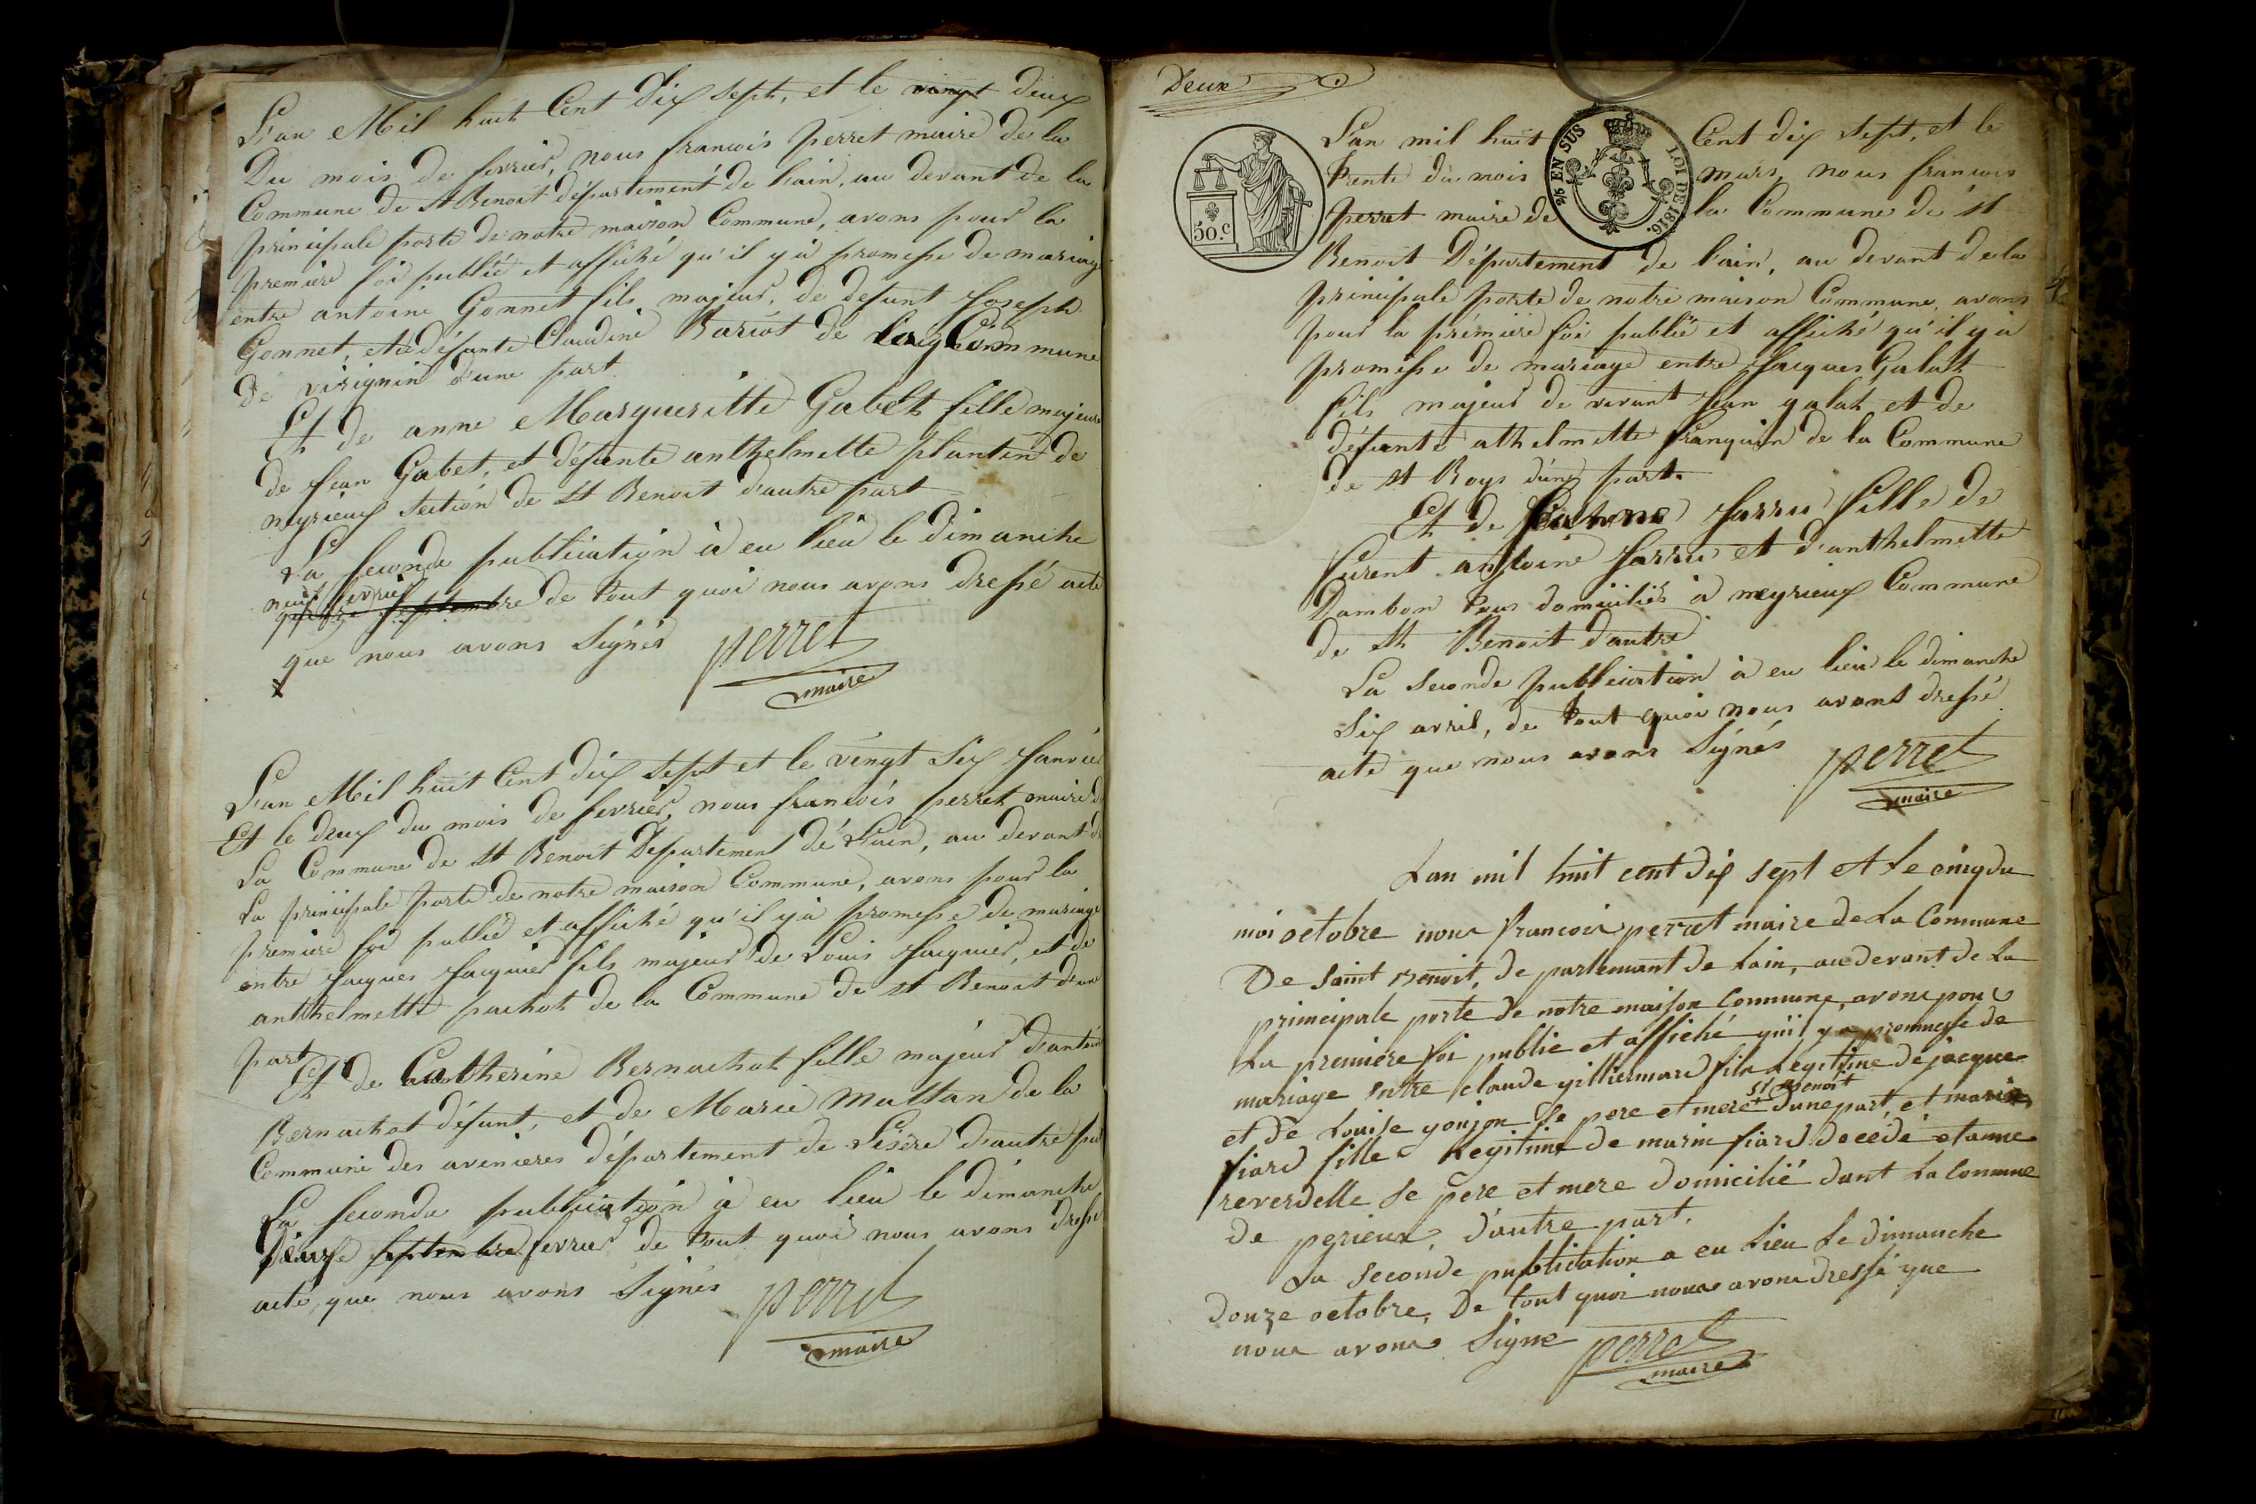 L'an Mil huit Cent dix sept, et le vingt deux
Du mois de fevrier, nous francois perret maire de la
Commune de St Benoit département de l'ain, au devant de la
principale porte de notre maison Commune, avons pour la
premiere foi publié et affiché qu'il y à promesse de mariage
entre antoine Gonnet fils majeur, de defunt Joseph
Gonnet, et de défunte Claudine Bariot de Commune
de virignin d'une part
Et de anne Margueritte Gabet fille majeure
de Jean Gabet, et défunte anthelmette plantin de
meyrieux Section de St Benoit d'autre part
La seconde publication à eu lieu le dimanche
neuf fevrier
septembre de tout quoi nous avons dressé acte
que nous avons Signés perret
maire
L'an Mil huit Cent dix sept et le vingt Six Janvier
Et le deux du mois de fevrier, nous francois perret maire de
La Commune de St Benoit Département de L'ain, au devant de
La principale porte de notre maison Commune, avons pour la
premiere foi publié et affiché qu'il y à promesse de mariage
entre Jacques Jacquier fils majeur de Louis Jacquier, et de
anthelmette pachot de la Commune de St Benoit d'une
part
Et de Catherine Bernachot fille majeur d'antoine
Bernachot défunt, et de Marie Mattan de la
Commune des avenieres département de Lisère d'autre part
La seconde publication à eu lieu le dimanche
septembre fevrier de tout quoi nous avons dressé
acte, que nous avons Signés perret
maire
Deux
50.c
2/5 EN SUS LOI DE 1816.
L'an mil huit Cent dix sept, et le
trente du mois mars, nous francois
perret maire de la Commune de St
Benoit Département de l'ain, au devant de la
principale porte de notre maison Commune, avons
pour la prémiére foi publié et affiché qu'il y à
promesse de mariage entre Jacques Galat
fils majeur de vivant Jean galat et de
défunte athelmette franquin de la Commune
de St Boys d'une part.
Et de Jeanne Jarru fille de
furent antoine Jarru et d'anthelmette
Dambon tous domiciliés à meyrieux Commune
de St Benoit d'autre
La seconde publication à eu lieu le dimanche
Six avril, de tout quoi nous avons dressé
acte que nous avons Signés perret
maire
Lan mil huit cent dix sept et Le cinq du
moi octobre nous francois perret maire de La Commune
De saint Benoit, de partemant de Lain, au devant de La
principale porte de notre maison Commune, avons pour
La premiere foi publie et affiché qu'il y a promesse de
mariage entre claude gilliermard fils Legitime de jacque
St Benoit
et De Louise gonjon Se pere et mere D'une part, et marie
fiard fille Legitime de marin fiard decédé et anne
reverdelle Se pere et mere domicilié dant La Comune
de perieux, d'autre part.
La seconde publication a eu Lieu Le dimanche
douze octobre, De tout quoi nous avons dressé que
nous avons Signe perret
maire